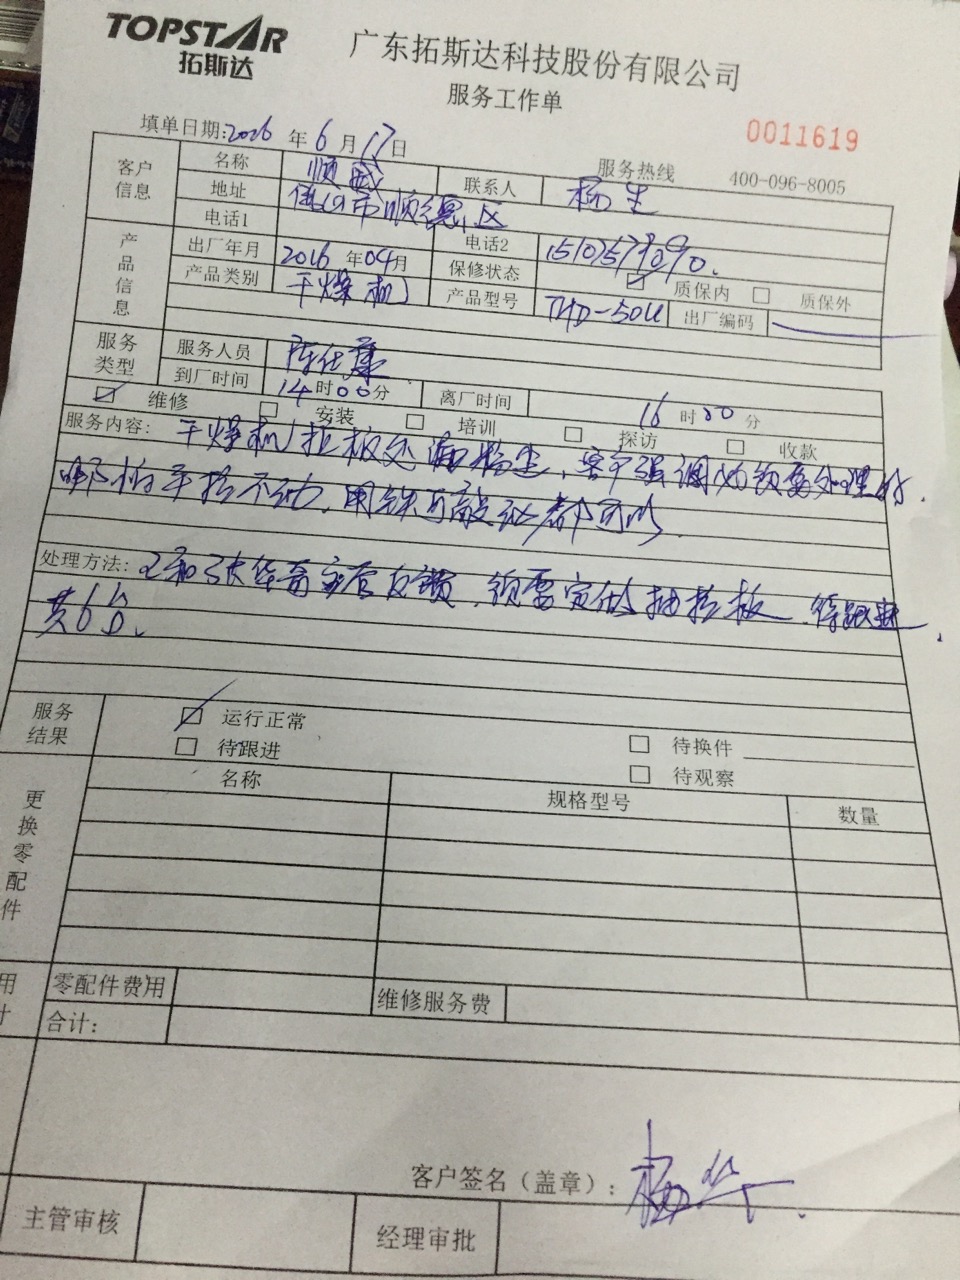 TOPSTAR
拓斯达
广东拓斯达科技股份有限公司
服务工作单
0011619
填单日期:2016 年 6 月 17 日
服务热线 400-096-8005
客户信息
名称 顺威 联系人 杨生
地址 佛山市顺德区
电话1 电话2
产品信息
出厂年月 2016 年 04 月 保修状态 质保内 质保外
产品类别 干燥机 产品型号 THD-50U 出厂编码
服务类型
服务人员 陈仕
到厂时间 14 时 00 分 离厂时间 16 时 00 分
维修 安装 培训 探访 收款
服务内容: 干燥机拉板处漏粉尘,客户强调必须要处理好.
哪怕手拉不动,用铁 敲 都可以.
处理方法: 已和张华 主管反馈,须要定做抽拉板,待跟进,
共6台.
服务结果
运行正常
待跟进 待换件
待观察
更换零配件
名称 规格型号 数量
用
计
零配件费用 维修服务费
合计:
客户签名（盖章）: 杨华
主管审核 经理审批